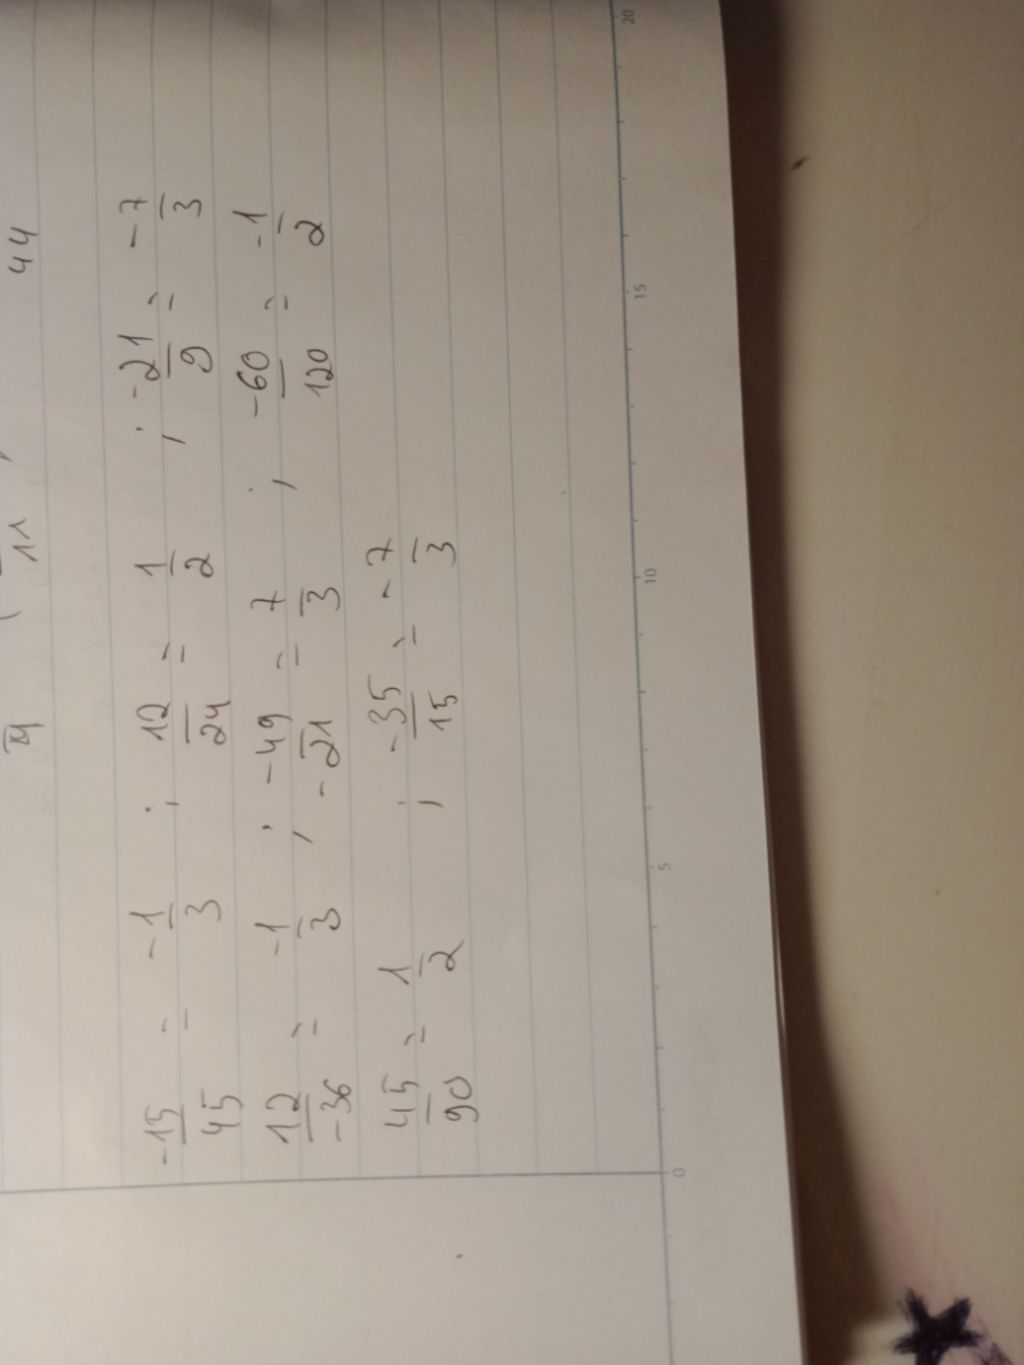 4 11 44
-15/45 = -1/3 ; 12/24 = 1/2 ; -21/9 = -7/3
12/-36 = -1/3 ; -49/-21 = 7/3 ; -60/120 = -1/2
45/90 = 1/2 ; -35/15 = -7/3
0 5 10 15 20